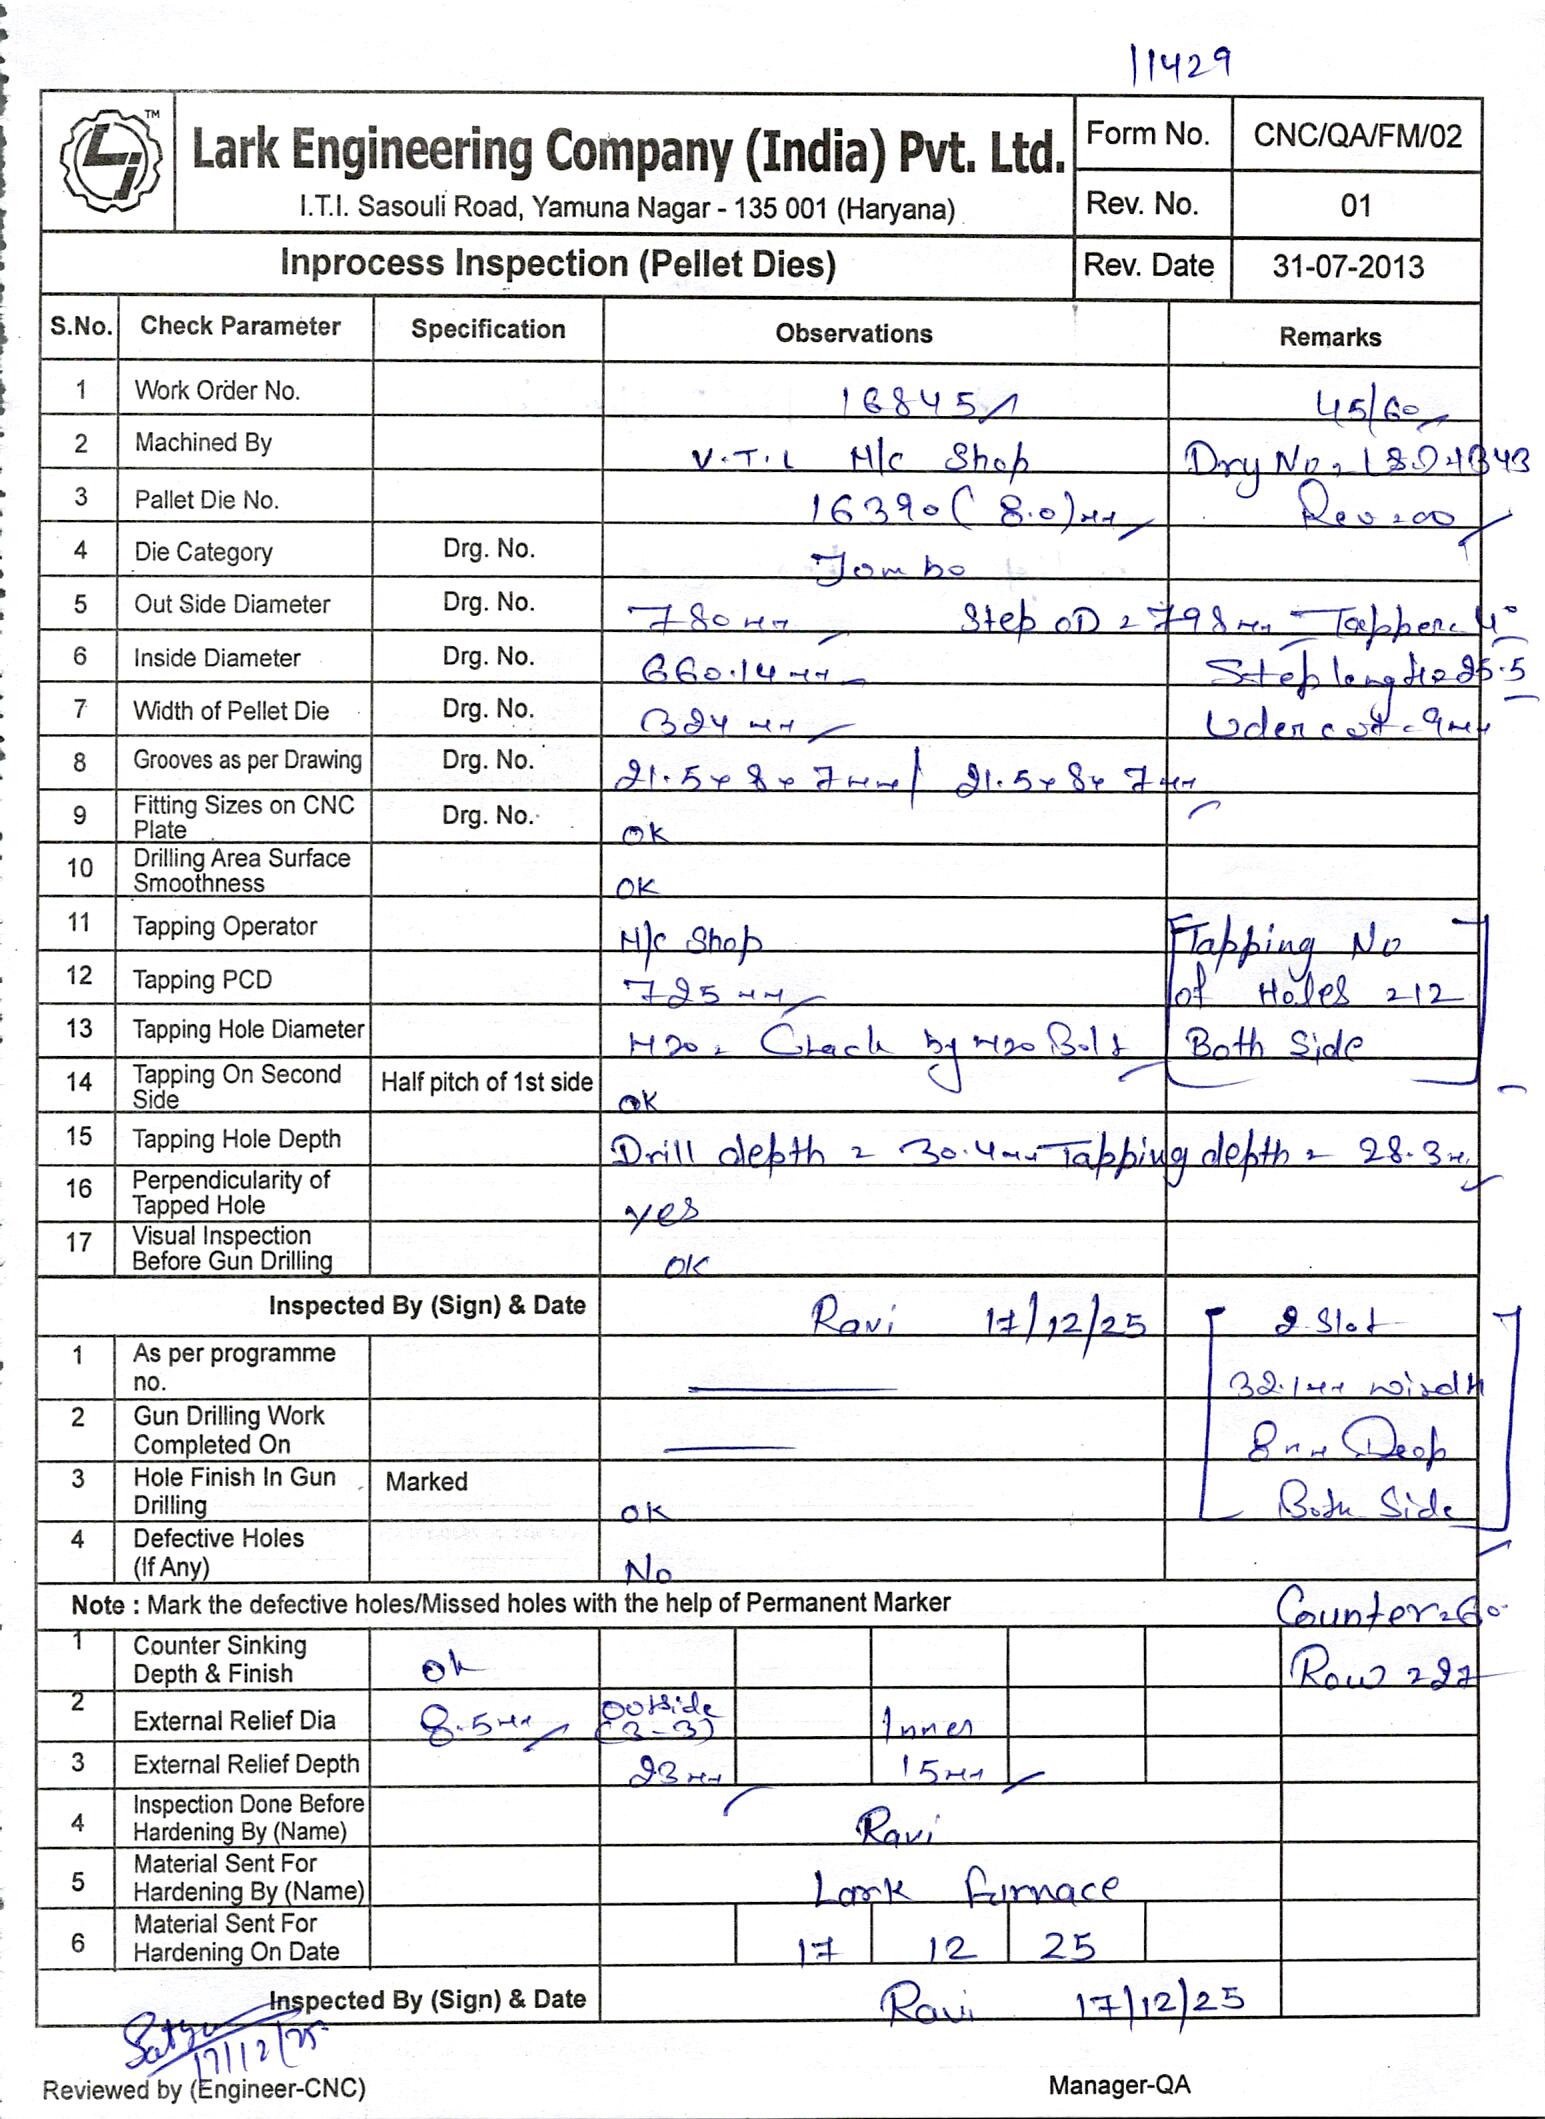 11429
TM
Lark Engineering Company (India) Pvt. Ltd.
I.T.I. Sasouli Road, Yamuna Nagar - 135 001 (Haryana)
Form No. CNC/QA/FM/02
Rev. No. 01
Inprocess Inspection (Pellet Dies) Rev. Date 31-07-2013
S.No. Check Parameter Specification Observations Remarks
1 Work Order No. 16845 45/60
2 Machined By V.T.L M/c Shop Dry No.
3 Pallet Die No. 16390 (8.0) mm Rev = 00
4 Die Category Drg. No. Jombo
5 Out Side Diameter Drg. No. 780 mm Step OD = 798 mm Tapper = 4°
6 Inside Diameter Drg. No. 660.14 mm Step length = 25.5
7 Width of Pellet Die Drg. No. 324 mm Uder cut = 9mm
8 Grooves as per Drawing Drg. No. 21.5 x 8 x 7 mm / 21.5 x 8 x 7 mm
9 Fitting Sizes on CNC Plate Drg. No. OK
10 Drilling Area Surface Smoothness OK
11 Tapping Operator M/c Shop Tapping No
12 Tapping PCD 725 mm of Holes = 12
13 Tapping Hole Diameter M20 = Chack by M20 Bolt Both Side
14 Tapping On Second Side Half pitch of 1st side OK
15 Tapping Hole Depth Drill depth = 30.4mm Tapping depth = 28.3
16 Perpendicularity of Tapped Hole yes
17 Visual Inspection Before Gun Drilling OK
Inspected By (Sign) & Date Ravi 17/12/25 2 Slot
1 As per programme no. 32.1mm
2 Gun Drilling Work Completed On 8mm Deep
3 Hole Finish In Gun Drilling Marked OK Both Side
4 Defective Holes (If Any) No
Note : Mark the defective holes/Missed holes with the help of Permanent Marker Counter = 60°
1 Counter Sinking Depth & Finish Ok Row = 27
2 External Relief Dia 8.5mm Outside (3-3) Inner
3 External Relief Depth 23mm 15mm
4 Inspection Done Before Hardening By (Name) Ravi
5 Material Sent For Hardening By (Name) Lark Furnace
6 Material Sent For Hardening On Date 17 12 25
Inspected By (Sign) & Date Ravi 17/12/25
17/12/25
Reviewed by (Engineer-CNC) Manager-QA